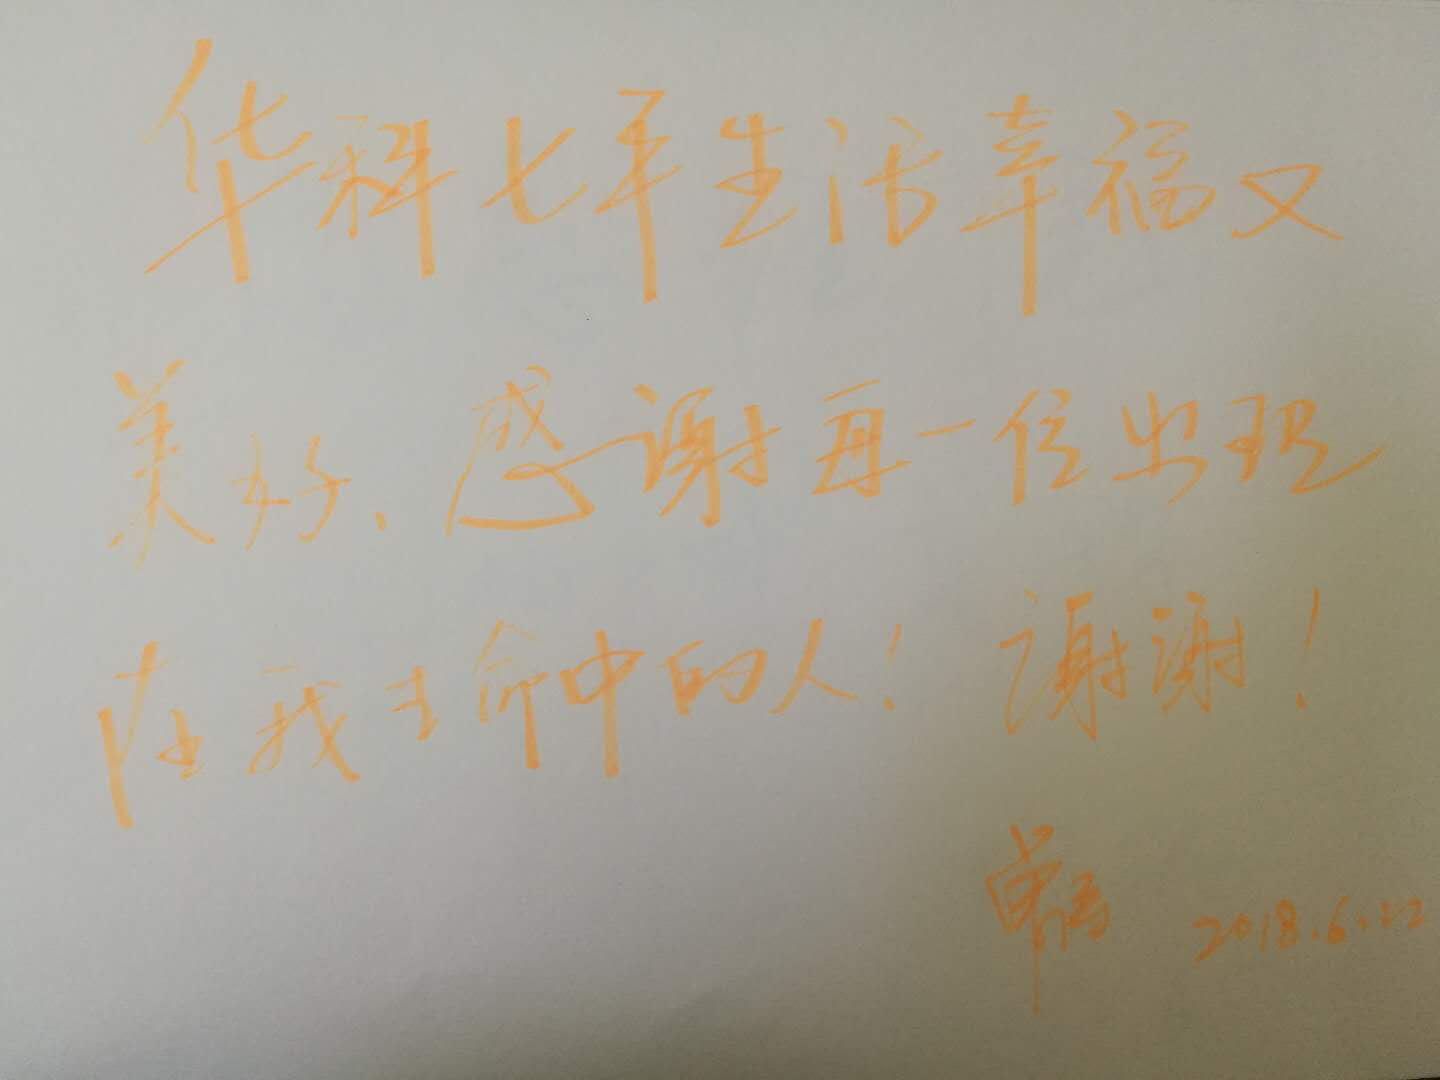 华科七年生活幸福又
美好、感谢每一位出现
在我生命中的人！谢谢！
2018.6.22